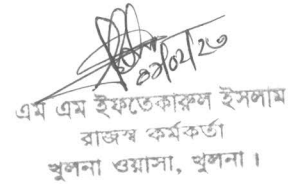 এম এম ইফতেকারুল ইসলাম
রাজস্ব কর্মকর্তা
খুলনা ওয়াসা, খুলনা।